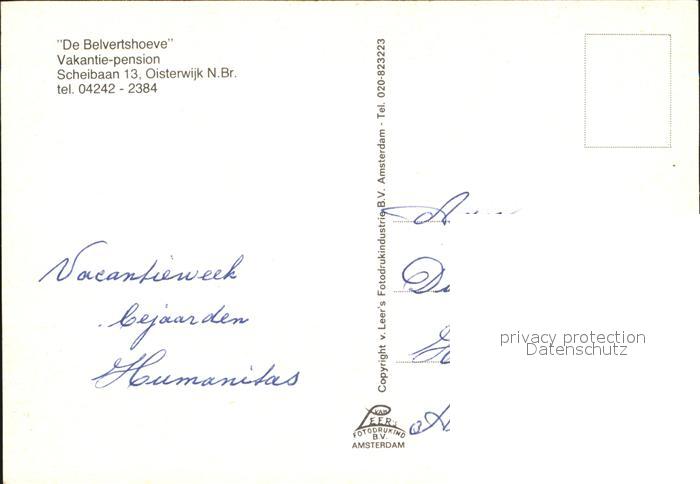 "De Belvertshoeve"
Vakantie-pension
Scheibaan 13, Oisterwijk N.Br.
tel. 04242 - 2384
Vacantieweek
bejaarden
Humanitas
Copyright v. Leer's Fotodrukindustrie B.V. Amsterdam - Tel. 020-823223
VAN
LEER'S
FOTODRUKIND
B.V.
AMSTERDAM
privacy protection
Datenschutz